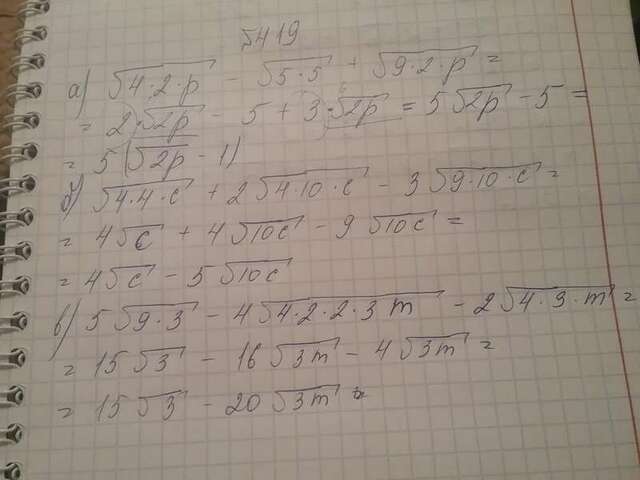 №419
а) √4·2·p - √5·5 + √9·2·p =
= 2·√2p - 5 + 3·√2p = 5√2p - 5 =
= 5(√2p - 1)
б) √4·4·c + 2√4·10·c - 3√9·10·c =
= 4√c + 4√10c - 9√10c =
= 4√c - 5√10c
в) 5√9·3 - 4√4·2·2·3m - 2√4·3·m =
= 15√3 - 16√3m - 4√3m =
= 15√3 - 20√3m